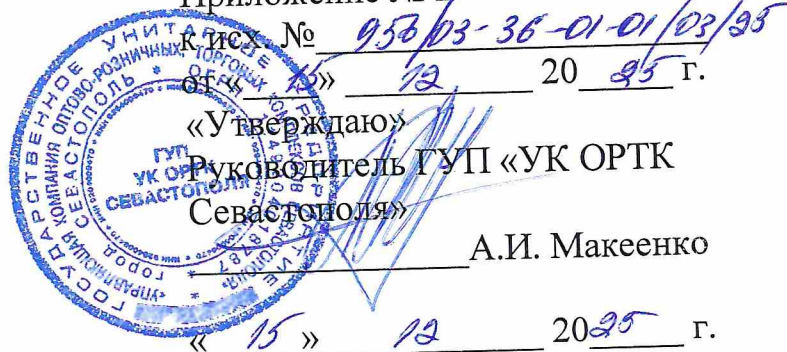 Приложение №
к исх. № 956/03-36-01-01/03/25
от «15» 12 2025 г.
«Утверждаю»
Руководитель ГУП «УК ОРТК
Севастополя»
А.И. Макеенко
«15» 12 2025 г.
ГОСУДАРСТВЕННОЕ УНИТАРНОЕ ПРЕДПРИЯТИЕ
УПРАВЛЯЮЩАЯ КОМПАНИЯ ОПТОВО-РОЗНИЧНЫХ ТОРГОВЫХ СЕВАСТОПОЛЯ
ГОРОД СЕВАСТОПОЛЬ
ГУП
УК ОРТК
СЕВАСТОПОЛЯ